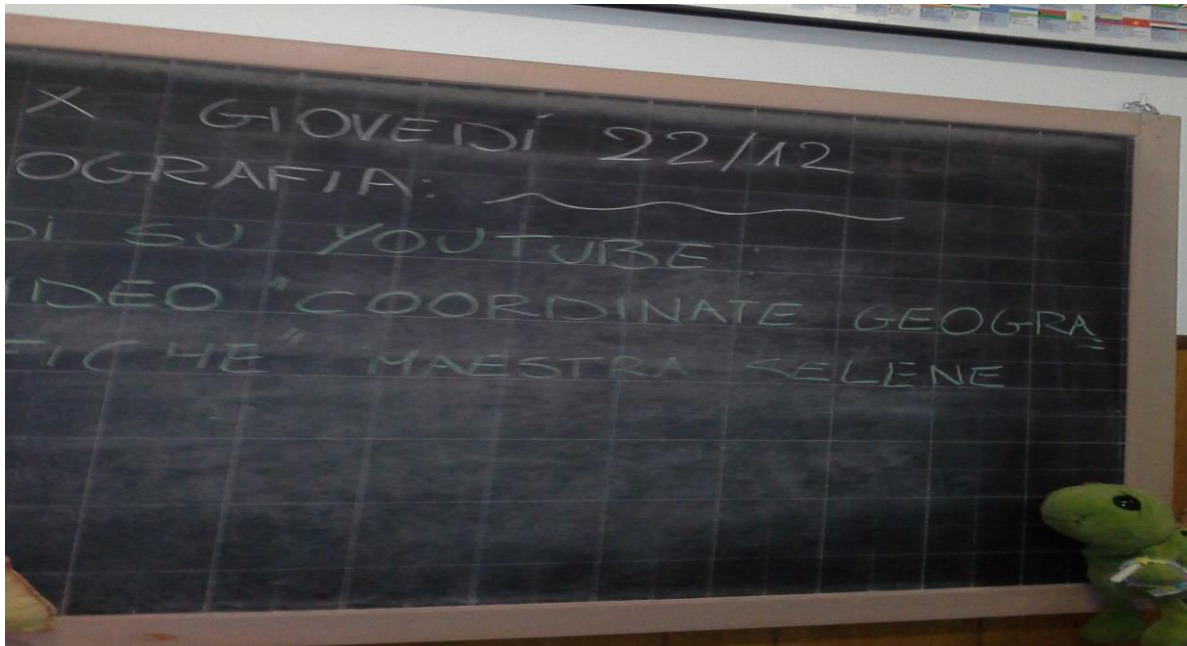 X GIOVEDÌ 22/12
OGRAFIA:
DI SU YOUTUBE:
IDEO "COORDINATE GEOGRA
FICHE" MAESTRA SELENE